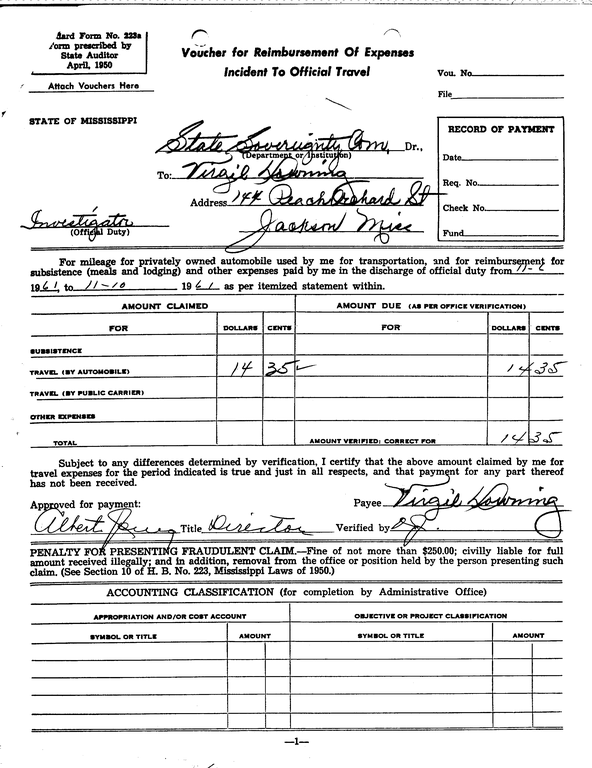 dard Form No. 223a
form prescribed by
State Auditor
April, 1950
Attach Vouchers Here
Voucher for Reimbursement Of Expenses
Incident To Official Travel
Vou. No.
File
STATE OF MISSISSIPPI
State Sovereignty Com, Dr.,
(Department or Institution)
To: Virgil Downing
Address 144 Peach Orchard St
Jackson Miss
Investigator
(Official Duty)
RECORD OF PAYMENT
Date
Req. No.
Check No.
Fund
For mileage for privately owned automobile used by me for transportation, and for reimbursement for
subsistence (meals and lodging) and other expenses paid by me in the discharge of official duty from 11-
1961, to 11-10 1961 as per itemized statement within.
AMOUNT CLAIMED AMOUNT DUE (AS PER OFFICE VERIFICATION)
FOR DOLLARS CENTS FOR DOLLARS CENTS
SUBSISTENCE
TRAVEL (BY AUTOMOBILE) 14 35 14 35
TRAVEL (BY PUBLIC CARRIER)
OTHER EXPENSES
TOTAL AMOUNT VERIFIED; CORRECT FOR 14 35
Subject to any differences determined by verification, I certify that the above amount claimed by me for
travel expenses for the period indicated is true and just in all respects, and that payment for any part thereof
has not been received.
Approved for payment: Payee Virgil Downing
Albert Jones Title Director Verified by
PENALTY FOR PRESENTING FRAUDULENT CLAIM.—Fine of not more than $250.00; civilly liable for full
amount received illegally; and in addition, removal from the office or position held by the person presenting such
claim. (See Section 10 of H. B. No. 223, Mississippi Laws of 1950.)
ACCOUNTING CLASSIFICATION (for completion by Administrative Office)
APPROPRIATION AND/OR COST ACCOUNT OBJECTIVE OR PROJECT CLASSIFICATION
SYMBOL OR TITLE AMOUNT SYMBOL OR TITLE AMOUNT
—1—